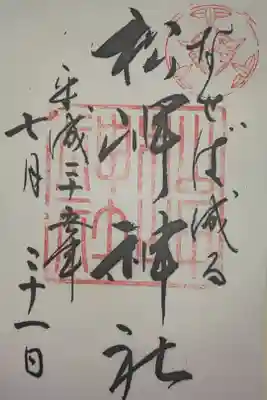 なせば成る
松岬神社
平成
年
七月
三十一日